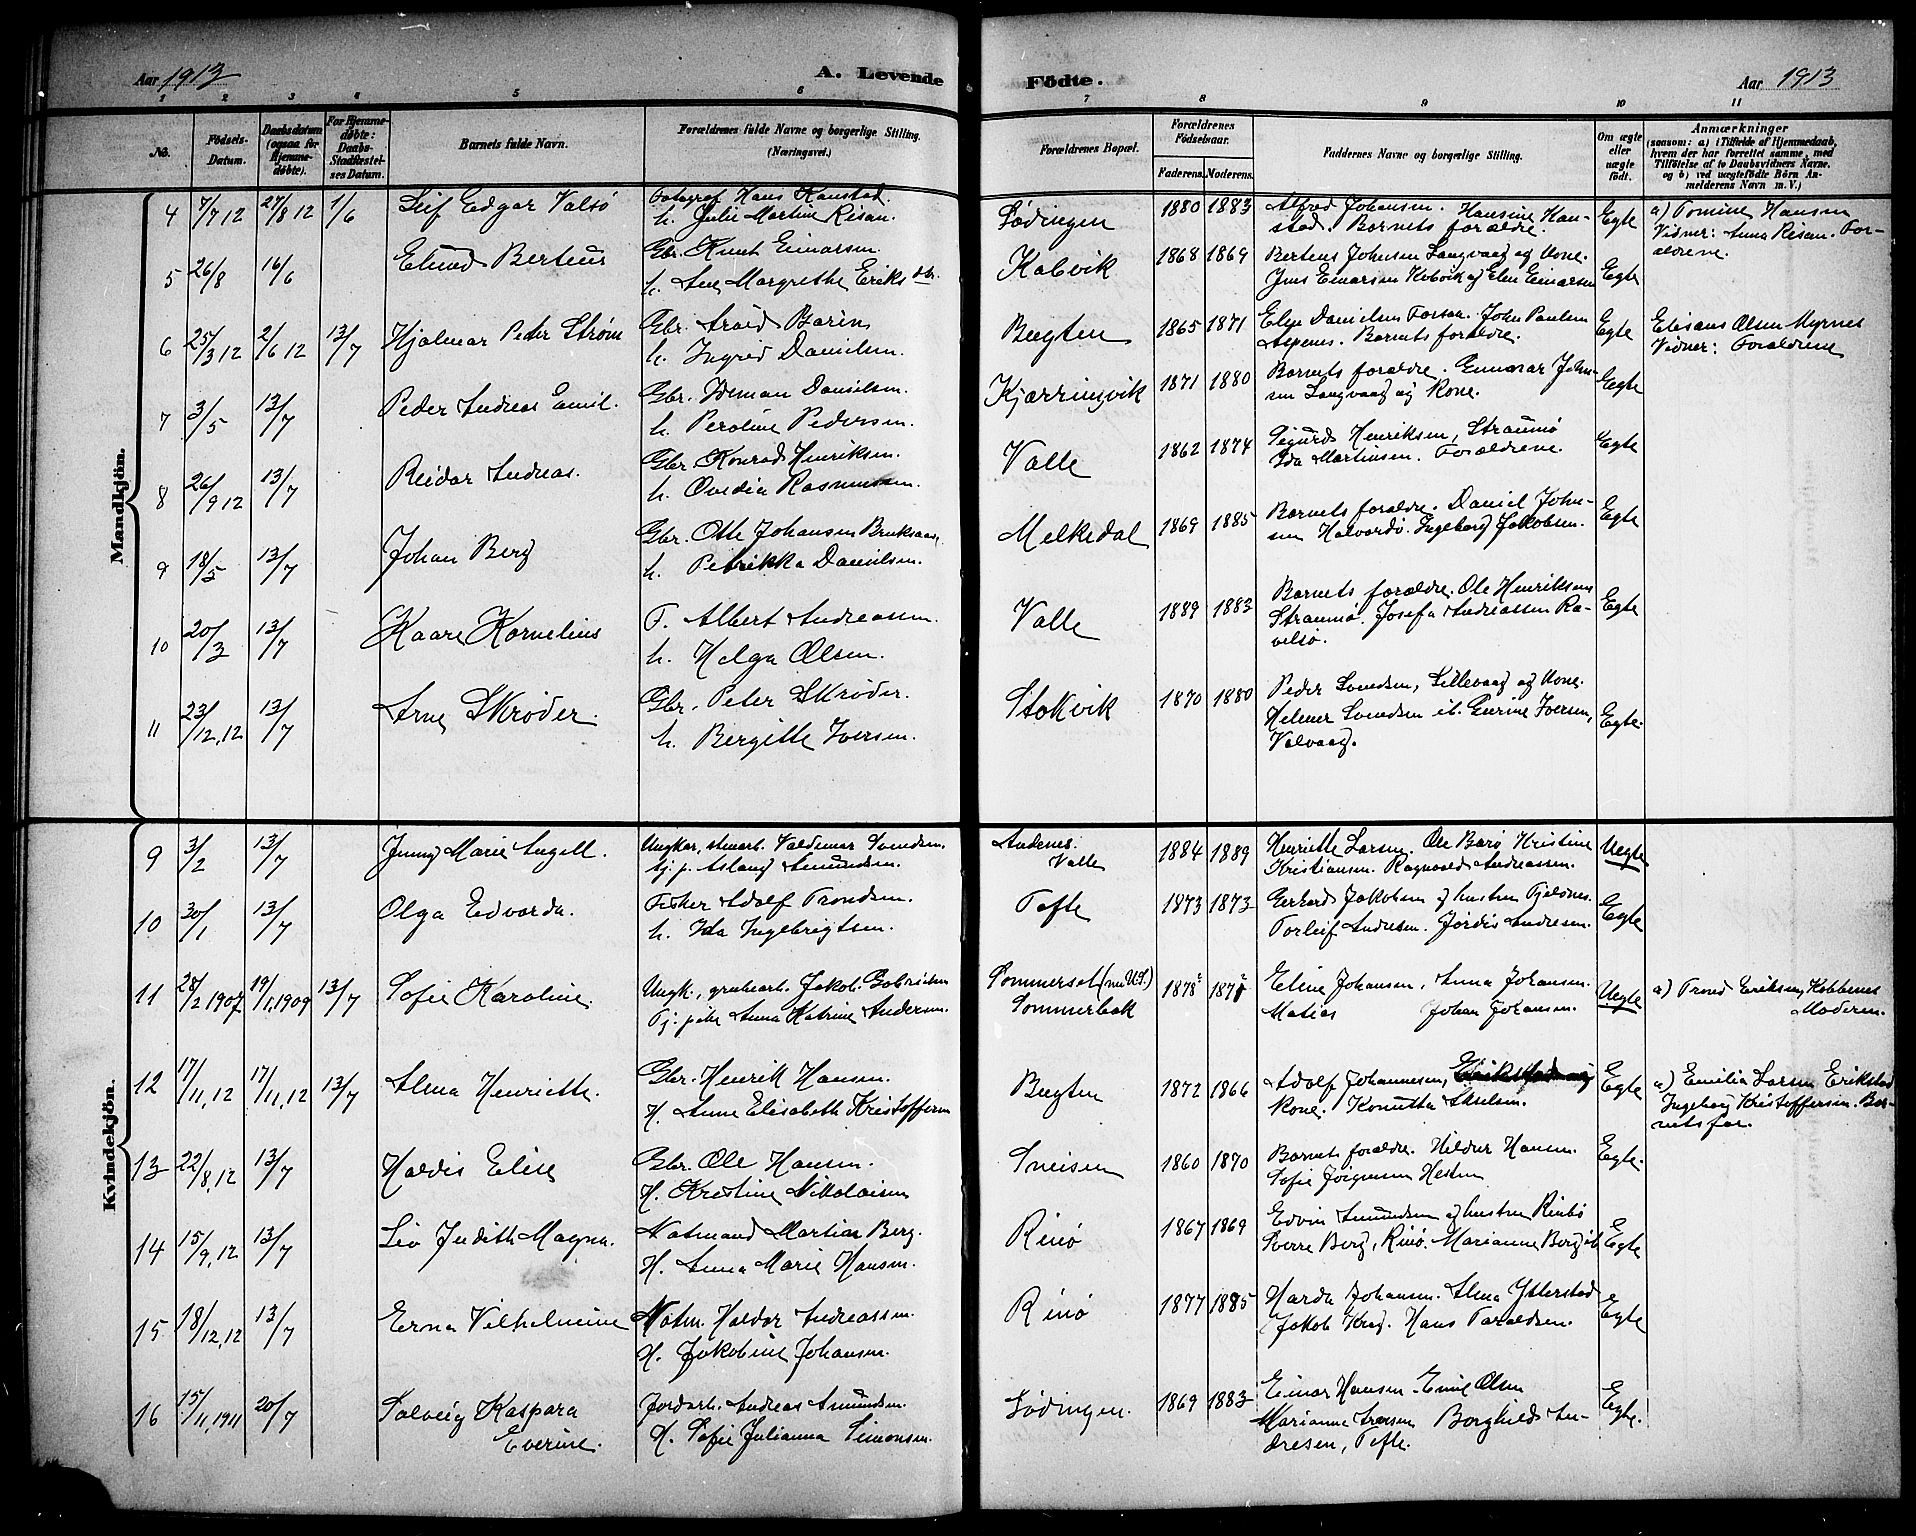 Aar 1913
A. Levende
Födte.
Aar 1913
1 2 3 4 5 6 7 8 9 10 11
No.
Födsels-
Datum.
Daabsdatum
(ogsaa for
Hjemme-
døbte).
For Hjemme-
døbte:
Daabs-
Stadfæstel-
ses Datum.
Barnets fulde Navn.
Forældrenes fulde Navne og borgerlige Stilling.
(Næringsvei.)
Forældrenes Bopæl.
Forældrenes
Fødselsaar.
Faderens. Moderens.
Faddernes Navne og borgerlige Stilling.
Om ægte
eller
uægte
født.
Anmærkninger
(saasom: a) i Tilfælde af Hjemmedaab,
hvem der har forrettet samme, med
Tilføielse af to Daabsvidners Navne.
og b) ved uægtefødte Børn An-
melderens Navn m. V.)
Mandkjön.
4 7/7 12 27/8 12 1/6 Leif Edgar Valsö
Fotograf Hans Kanstad.
h. Julie Martine Risan.
Lødingen 1880 1883
Alfred Johansen. Hansine Kan-
stad. Barnets forældre.
Egte
a) Tomine Hansen
Vidner: Anna Risan. For-
ældrene.
5 26/8 16/6 Elund Berteus
Gbr. Knut Einarsen.
h. Ane Margrethe Eriksdtr.
Kobvik 1868 1869
Bertens Johnsen Langvaag og Kone.
Jens Einarsen Kobvik og Elen Einarsen
Egte
6 25/3 12 2/6 12 13/7 Hjalmar Peder Strøm
Gbr. Arvid Barin
h. Ingrid Danielsen.
Bugten 1865 1871
Elge Danielsen Forsaa. John Paulsen
Aspenes. Barnets forældre.
Egte
Elisæus Olsen Myrnes
Vidner: Forældrene
7 3/5 13/7 Peder Andreas Emil.
Gbr. Ingeman Danielsen.
h. Peroline Pedersen.
Kjærringvik 1871 1880
Barnets forældre. Gunnar John-
sen Langvaag og Kone.
Egte
8 26/9 12 13/7 Reidar Andreas.
Gbr. Konrad Henriksen.
h. Ovedia Rasmussen.
Valle 1862 1874
Sigurd Henriksen, Straumö
Ida Martinsen. Forældrene.
Egte
9 18/5 13/7 Johan Berg
Gbr. Otte Johansen Bruksaas,
h. Petrikka Danielsen.
Melkedal 1869 1885
Barnets forældre. Daniel John-
sen Halvardö. Ingeborg Jakobsen.
Egte
10 20/3 13/7 Kaare Kornelius
F. Albert Andreassen.
h. Helga Olsen.
Valle 1889 1883
Barnets forældre. Ole Henriksen
Straumö. Josefa Andreassen Ra-
velsö.
Egte
11 23/12,12 13/7 Arne Skröder.
Gbr. Peter Skröder.
h. Bergitte Iversen.
Stokvik 1870 1880
Peder Svendsen, Lillevaag og Kone.
Helmer Svendsen ib. Gurine Iversen,
Valvaag.
Egte.
Kvindekjön.
9 3/2 13/7 Jenny Marie Angell.
Ungkar, stenarb. Valdemar Svendsen.
tj. p. Aslaug Amundsen.
Andenes.
Valle 1884 1889
Henriette Larsen. Ole Barö Kristine
Kristiansen. Ragnvald Andreassen.
Uegte
10 30/1 13/7 Olga Edvarda.
Fisker Adolf Trondsen.
h. Ida Ingebrigtsen.
Tofte 1873 1873
Gerhard Jakobsen og hustru Fjeldnes.
Torleif Andresen. Jordis Andresen.
Egte
11 28/2 1907 19/1 1909 13/7 Sofie Karoline.
Ungk., grubearb. Jakob Gabrielsen
Tj. pike Anna Katrine Andersen.
Sommerset (nu US.)
Sommerbak 1878 1871
Eline Johansen, Anna Johansen.
Matias Johan Johansen.
Uegte
a) Trond Eriksen, Kobbenes
Moderen.
12 17/11,12 17/11,12 13/7 Alma Henriette.
Gbr. Henrik Hansen.
H. Anne Elisabeth Kristoffersen
Bugten 1872 1866
Adolf Johannesen,
Kone. Konutta Akselsen.
Egte
a) Emilie Larsen Erikstad
Ingeborg Kristoffersen. Bar-
netsfar.
13 22/8,12 13/7 Haldis Elise
Gbr. Ole Hansen.
H. Kristine Nikolaisen
Sneisen 1860 1870
Barnets forældre. Hildur Hansen.
Sofie Jörgensen Hesten
Egte.
14 15/9,12 13/7 Liv Judith Magna.
Notmand Martin Berg.
H. Anna Marie Hansen.
Rinö 1867 1869
Edvin Amundsen og hustru Rinbö
Sverre Berg, Rinö. Marianne Berg ib
Egte
15 18/12,12 13/7 Erna Vilhelmine
Notm. Haldor Andreassen
H. Jakobine Johansen.
Rinö 1877 1885
Harda Johansen. Alma Ytterstad
Jakob Krag. Hans Taraldsen.
Egte
16 15/11,1911 20/7 Solveig Kaspara
Everine.
Jordarb. Andreas Amundsen.
H. Sofie Julianna Simonsen.
Lødingen. 1869 1883
Einar Hansen. Emil Olsen
Marianne Larsen Borghild An-
dresen, Tofte.
Egte.